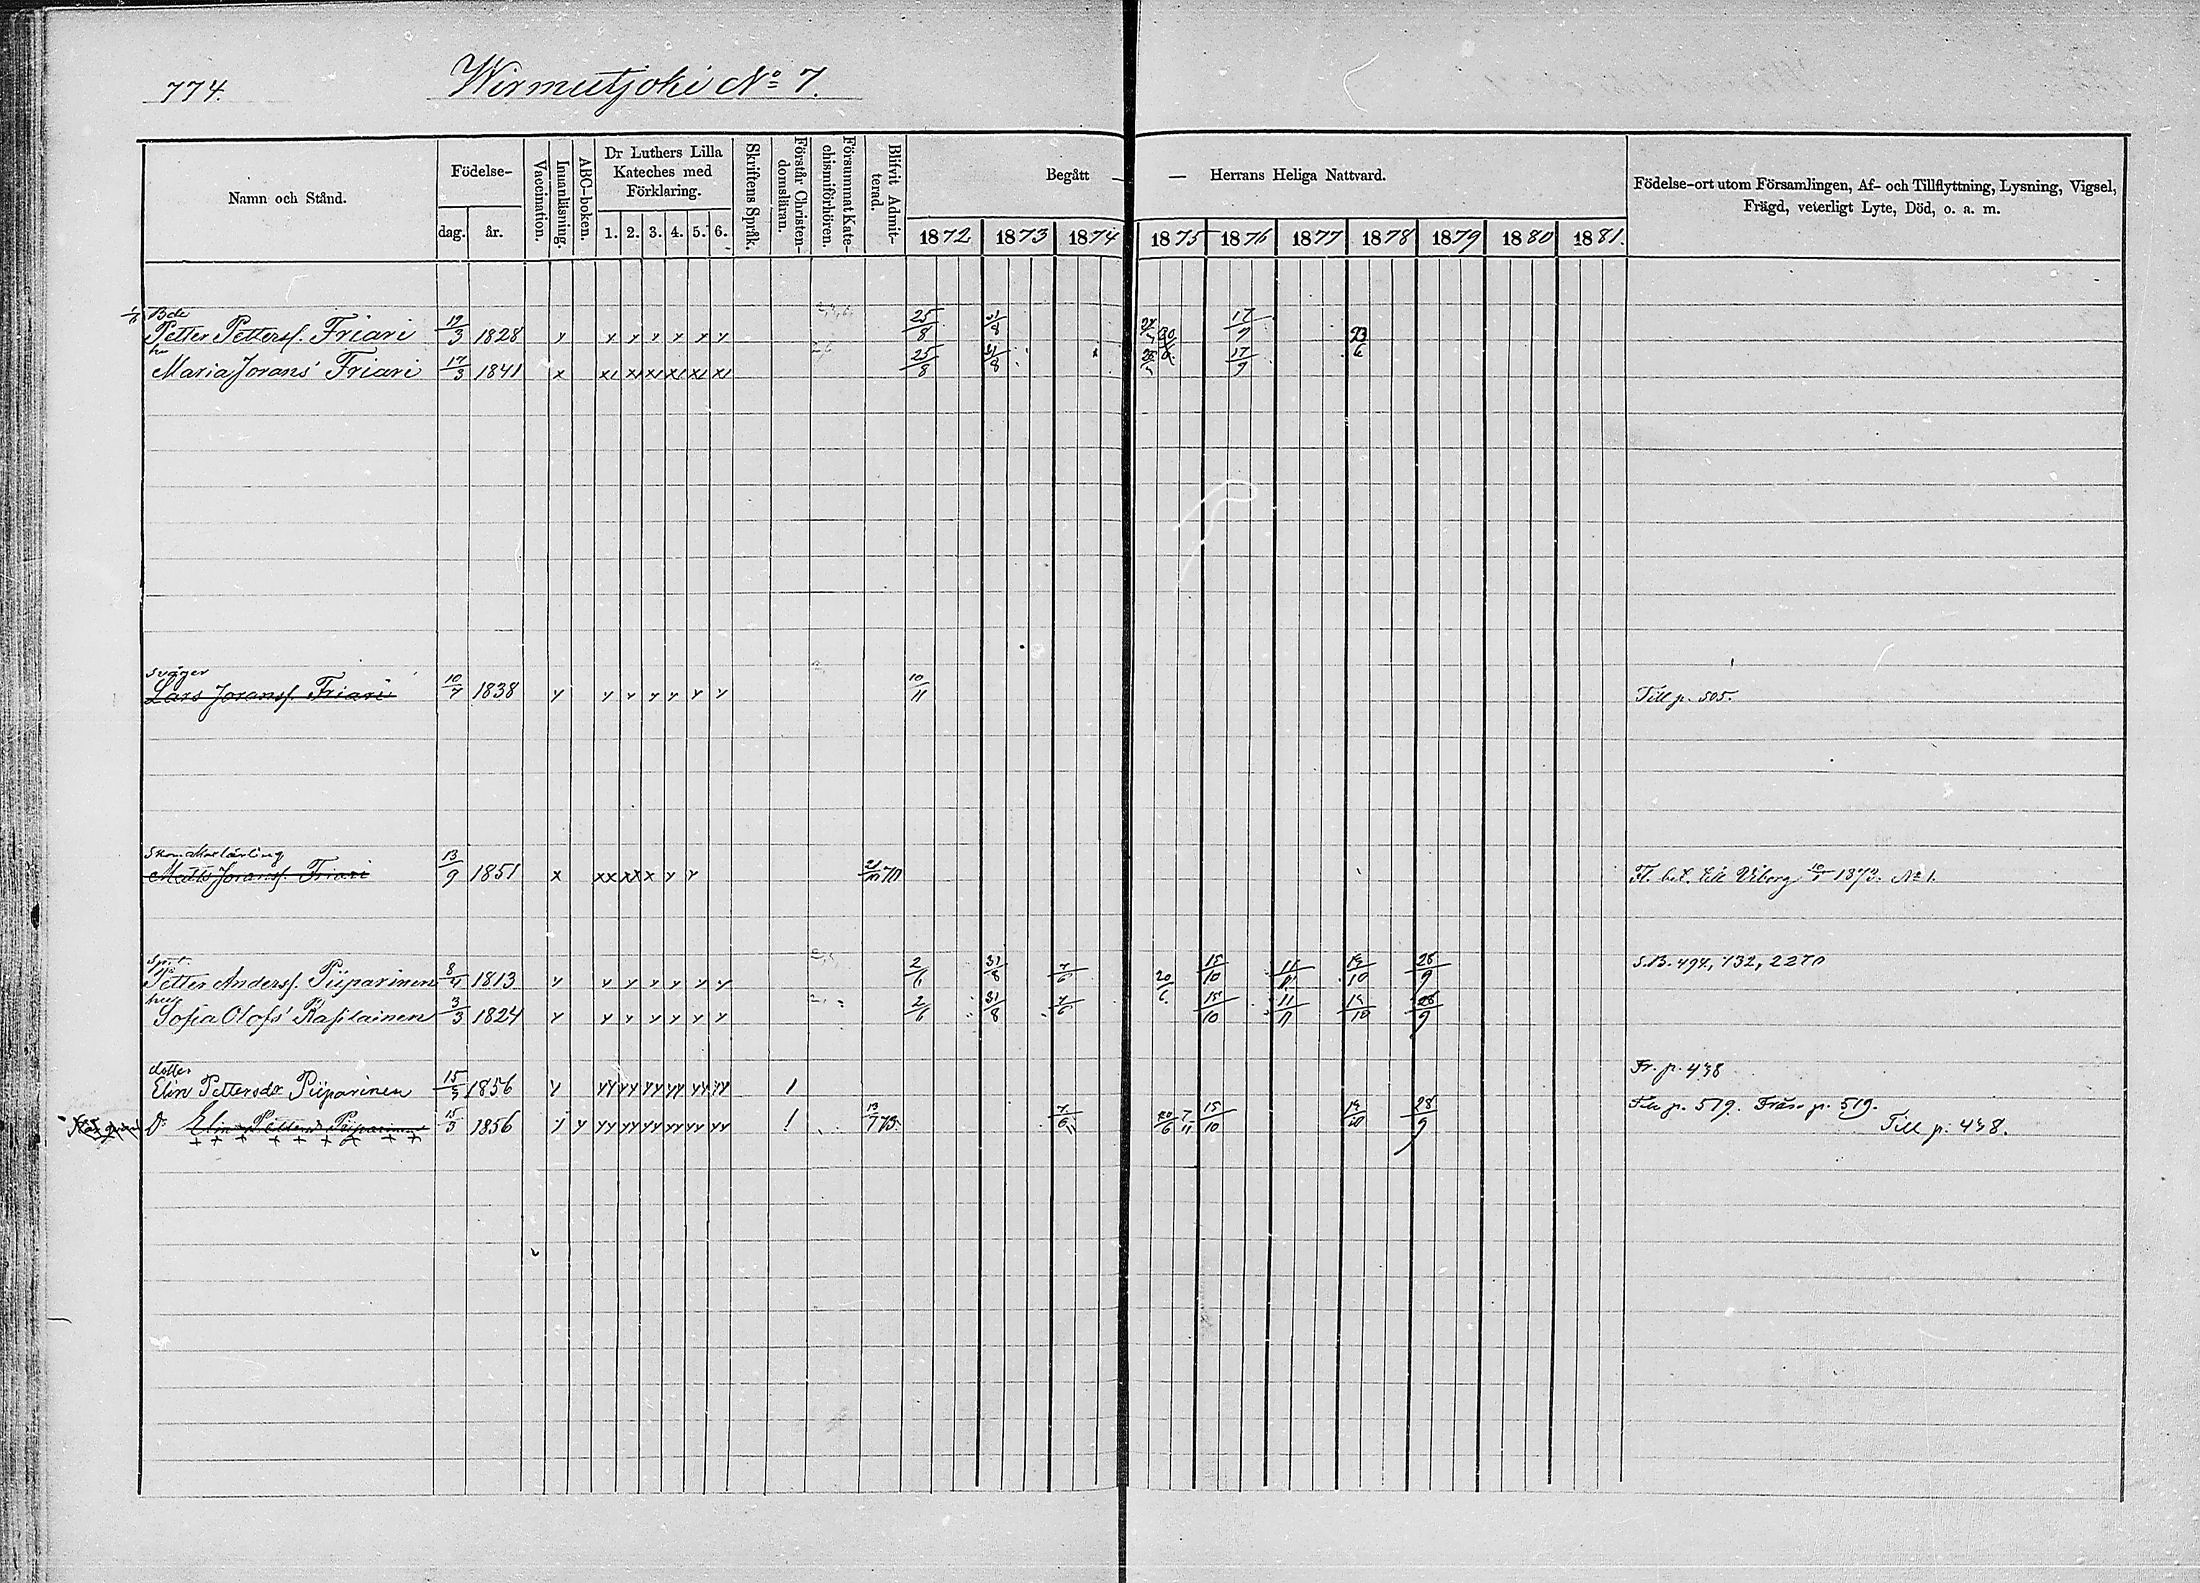 774.
Wirmutjoki No 7.
Namn och Stånd.
Födelse-
dag. år.
Vaccination.
Innanläsning.
ABC-boken.
Dr Luthers Lilla Kateches med Förklaring.
1. 2. 3. 4. 5. 6.
Skriftens Språk.
Förstår Christen-domsläran.
Försummat Kate-chismiförhören.
Blifvit Admit-terad.
Begått — — Herrans Heliga Nattvard.
1872 1873 1874 1875 1876 1877 1878 1879 1880 1881.
Födelse-ort utom Församlingen, Af- och Tillflyttning, Lysning, Vigsel,
Frägd, veterligt Lyte, Död, o. a. m.
Bde
Petter Petterss. Friari 19/3 1828 25/8 31/8 17/9 23/6
hu
Maria Jorans' Friari 17/3 1841 25/8 31/8 17/9 6
Svåger
Lars Joranss. Friari 10/7 1838 10/11 Till p. 505.
Matts Joranss. Friari 13/9 1851 Fl. bet. till Viborg 1873. No 1.
Petter Anderss. Piiparinen 8/4 1813 2/6 31/8 7/6 20/6 15/10 11/11 19/10 28/9 S.B. 494, 132, 2270
hu
Sofia Olofs' Rasilainen 3/3 1824 2/6 31/8 7/6 15/10 11/11 19/10 28/9
dotter
Elin Pettersdr Piiparinen 15/5 1856 1 Fr. p. 438
Dr Elin Petters Piiparinen 15/5 1856 1 7/6 20/6 7/11 15/10 19/10 28/9 p. 519. Från p. 519.
Till p. 438.